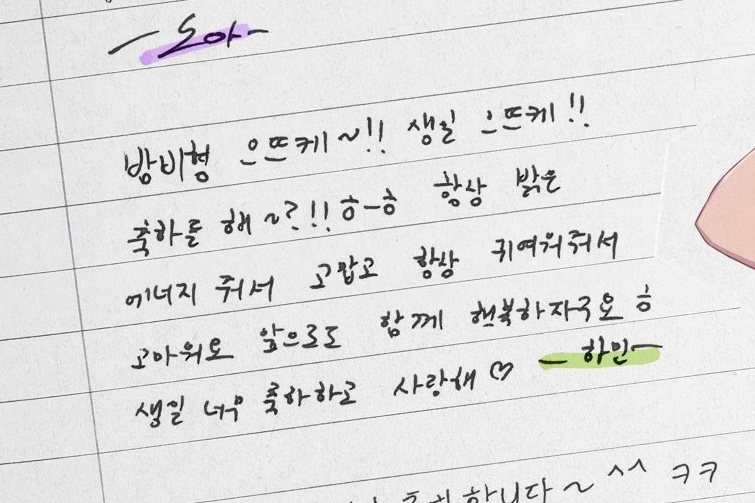 - 노아 -
밤비형 으뜨케~!! 생일 으뜨케!!
축하를 해~?!! ㅎ-ㅎ 항상 밝은
에너지 줘서 고맙고 항상 귀여워줘서
고마워요 앞으로도 함께 행복하자구요 ㅎ
생일 너무 축하하고 사랑해 ♡ - 하민 -
축하합니다~ ^^ ㅋㅋ